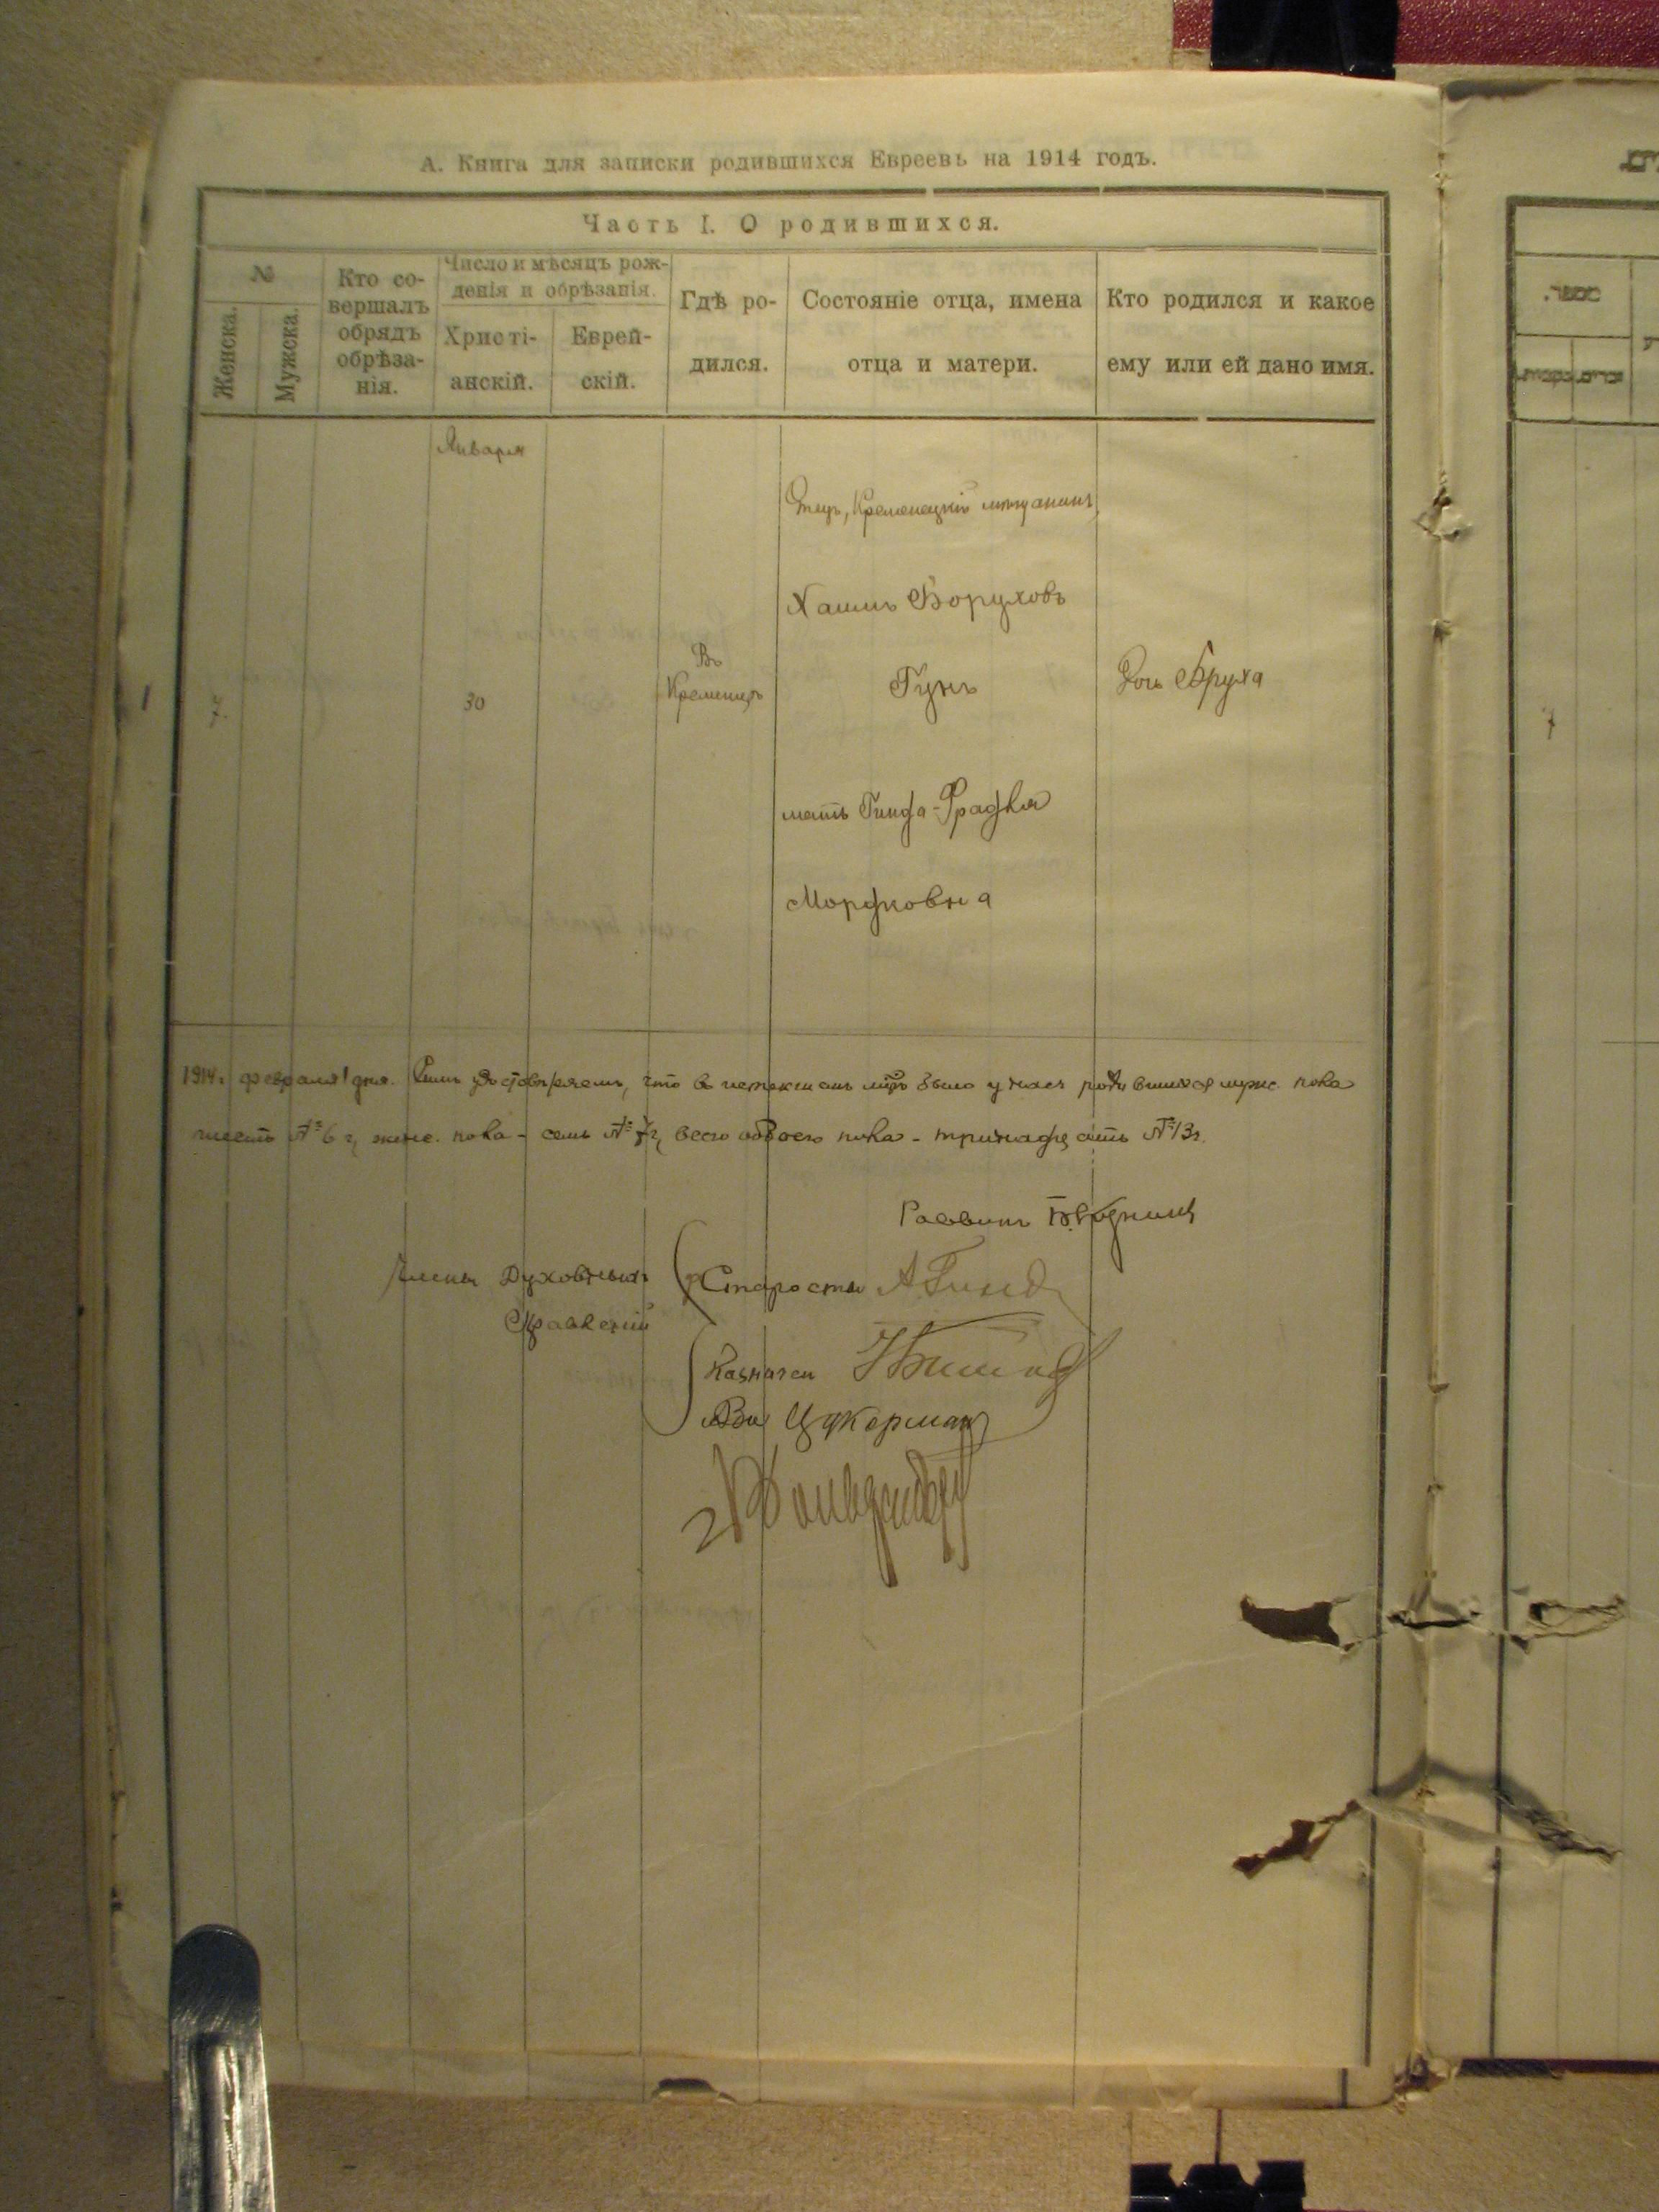 А. Книга для записки родившихся Евреевъ на 1914 годъ.
Часть I. О родившихся.
№
Женска.
Мужска.
Кто со-
вершалъ
обрядъ
обрѣза-
нія.
Число и мѣсяцъ рож-
денія и обрѣзанія.
Христі-
анскій.
Еврей-
скій.
Гдѣ ро-
дился.
Состояніе отца, имена
отца и матери.
Кто родился и какое
ему или ей дано имя.
Января
Отецъ, Кременецкій мѣщанинъ
Хаимъ Боруховъ
7.
30
Въ
Кременцѣ
Гунъ
Дочь Бруха
мать Гинда-Фрадля
Мордковна
1914 г. февраля 1 дня. Симъ удостовѣряемъ, что въ истекшемъ мѣсяцѣ было у насъ родившихся мужс. пола
шесть № 6 г, женс. пола - семь № 7 г, всего обоего пола - тринадцать № 13 г.
Раввинъ
Члены Духовныхъ
Правленій
Староста
Казначеи
Цукерман
7